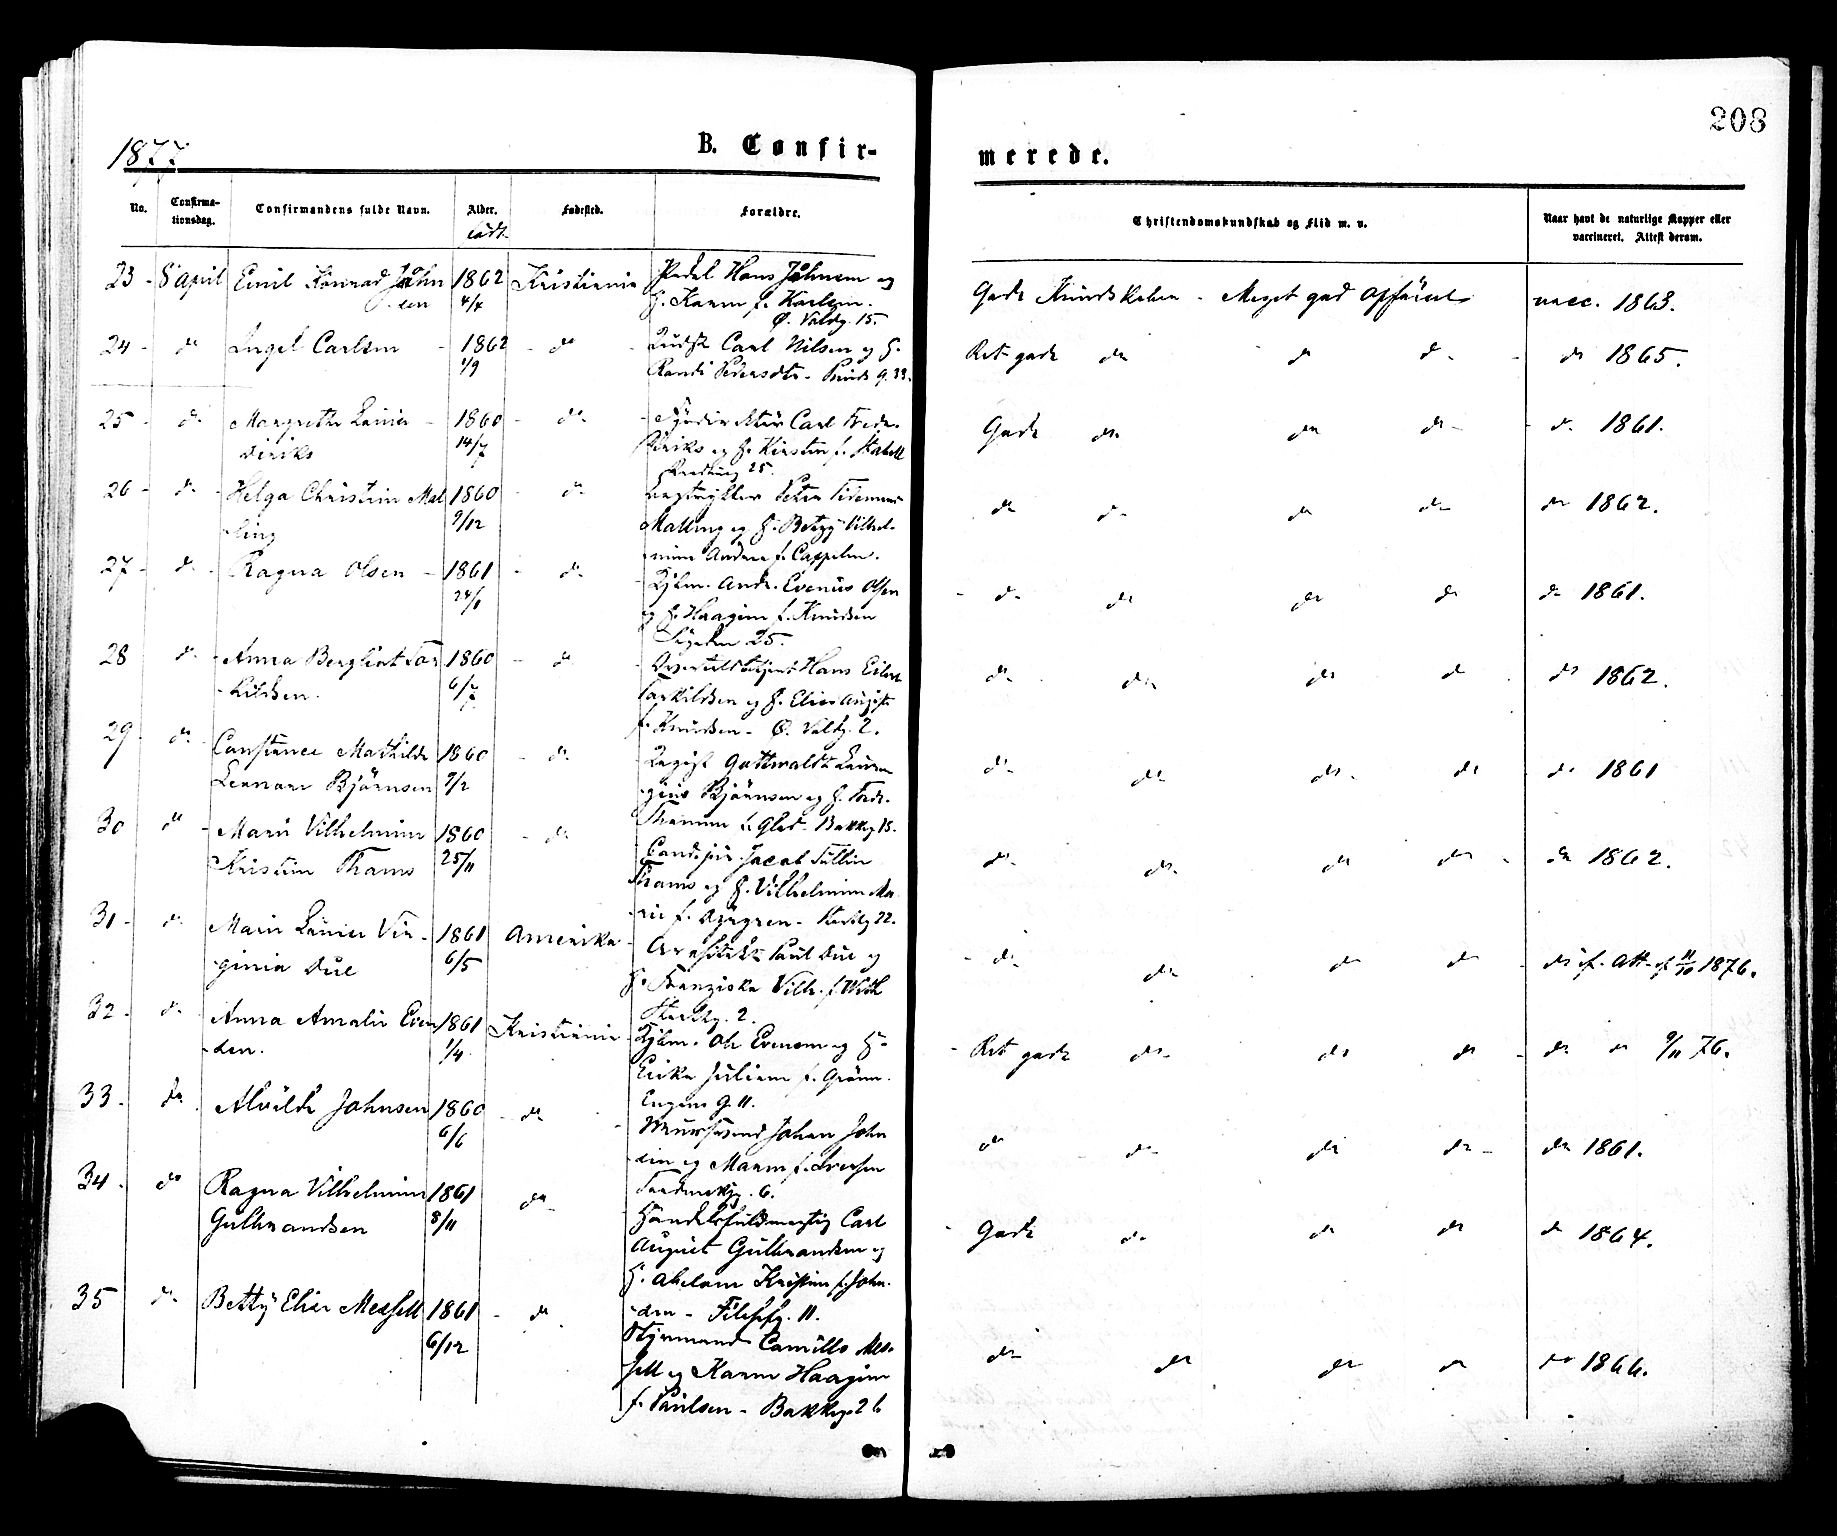 208
1877
B. Confir-
merede.
No.
Confirma-
tionsdag.
Confirmandens fulde Navn.
Alder.
født
Fødested.
Forældre.
Christendomskundskab og Flid m. v.
Naar havt de naturlige Kopper eller
vaccineret. Attest derom.
23 - 8 April Emil Konrad John 1862 Kristiania Pedel Hans Johnsen og
sen 4/4 H. Karen f. Karlsen.
Ø. Voldg. 15.
Gode Kundskaber - Meget god Opførsel vacc. 1863.
24 - do Ingel Carlsen - 1862 - do - Carl Nilsen og H.
1/9 Randi Pedersdtr -
Ret gode do do do - do 1865.
25 - do Margrethe Louise - 1860 - do - Carl Frede-
Diriks 14/7 Diriks og H. Kirsten f. Stabell
25.
Gode do do do - do 1861.
26 - do Helga Christine Mal 1860 - do Peter Tidemand
ling 9/12 Malling og H. Betzy Vilhel-
mine Andrea f. Cappelen.
do do do do do 1862.
27 - do Ragna Olsen - 1861 - do Kjbm. Andr. Evenius Olsen
24/8 og H. Haagine f. Knudsen
25.
- do do do do do 1861.
28 do Anna Bergliot Tor 1860 - do Hans Eilert
kildsen. 6/7 Torkildsen og H. Elise Auguste
f. Knudsen - Ø. Voldg. 2.
do do do do do 1862.
29 do Constance Mathilde 1860 - do Gottwaldt
Lennare Bjørnsen 7/2 Bjørnsen og H. Fredr.
f. Glad - Bakkeg 15.
do do do do do 1861
30 do Marie Vilhelmine 1860 - do Cand. jur. Jacob Tullin
Kristine Thams 25/11 Thams og H. Vilhelmine Ma
rie f. - 22.
do do do do - do 1862.
31 - do Marie Louise Vir - 1861 Amerika Arkitekt Paul Due og
ginia Due 6/5 H. Franziska Vilh. f.
2.
- do do do do - do cf. Att. af 11/10 1876.
32 - do Anna Amalie Even 1861 Kristiania Kjbm. Ole Evensen og H.
sen. 1/4 Erika Juliane f. Grønn.
G. 11.
- Ret gode do do do - do do 9/11 76.
33 - do Alvilde Johnsen 1860 - do Johan John
6/6 sen og Maren f. Iversen
6.
do do do do - do 1861.
34 - do Ragna Vilhelmine 1861 do - Handelsfuldmægtig Carl
Gulbrandsen 8/11 August Gulbrandsen og
H. Kristine f. John-
sen - 11.
- Gode do do do do 1864.
35 do Betty Elise Messell 1861 - do Styrmand Camillo Mes-
6/12 sell og Karen Haagine
f. Paulsen - Bakkeg. 26
do do do do do 1866.